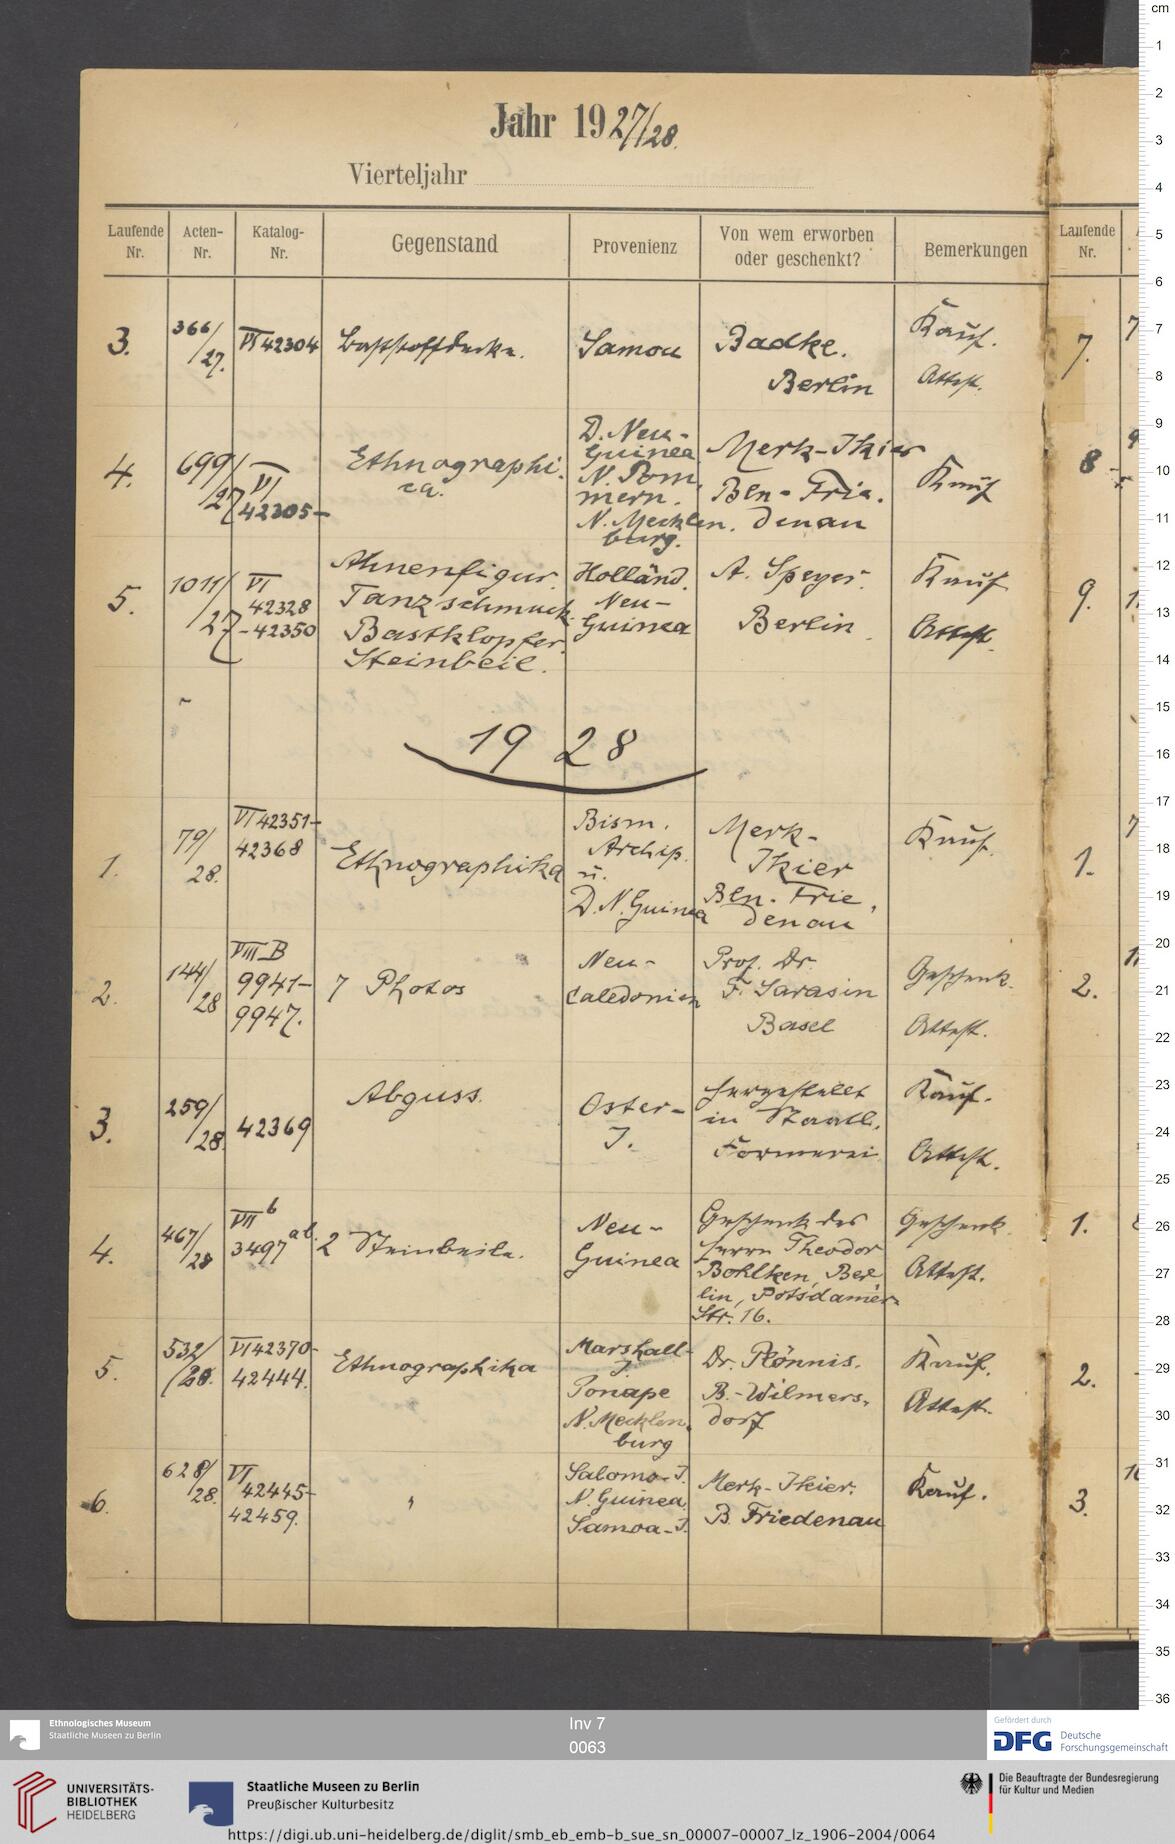 Jahr 1927/28.
Vierteljahr
Laufende Nr.
Acten-Nr.
Katalog-Nr.
Gegenstand
Provenienz
Von wem erworben oder geschenkt?
Bemerkungen
Laufende Nr.
3. 366/27. VI 42304 Baststoffdecke. Samoa Badke. Berlin Kauf. Attest.
4. 699/27 VI 42305- Ethnographica. D. Neu-Guinea N. Pommern. N. Mecklenburg. Merk-Ikier Bln-Friedenau Kauf
5. 1011/27 VI 42328-42350 Ahnenfigur Tanzschmuck Bastklopfer Steinbeil. Holländ. Neu-Guinea A. Speyer. Berlin. Kauf Attest.
1928
1. 79/28. VI 42351-42368 Ethnographika Bism. Archip. u. D.N. Guinea Merk-Ikier Bln.-Friedenau Kauf.
2. 144/28 VIII B 9941-9947. 7 Photos Neu-Caledonien Prof. Dr. F. Sarasin Basel Geschenk. Attest.
3. 259/28. 42369 Abguss. Oster-I. Hergestellt in Staatl. Formerei Kauf. Attest.
4. 467/28 VII b 3497 ab. 2 Steinbeile. Neu-Guinea Geschenk des Herrn Theodor Bohlken, Berlin, Potsdamer-Str. 16. Geschenk. Attest.
5. 532/28. VI 42370-42444. Ethnographika Marshall-I. Ponape N. Mecklenburg Dr. Plönnis. B.-Wilmersdorf Kauf. Attest.
6. 628/28. VI 42445-42459. " Salomo-I. N. Guinea. Samoa-I. Merk-Ikier. B. Friedenau Kauf.
7.
8
9.
1.
2.
1.
2.
3.
cm
1
2
3
4
5
6
7
8
9
10
11
12
13
14
15
16
17
18
19
20
21
22
23
24
25
26
27
28
29
30
31
32
33
34
35
36
Ethnologisches Museum
Staatliche Museen zu Berlin
Inv 7
0063
Gefördert durch
DFG Deutsche
Forschungsgemeinschaft
UNIVERSITÄTS-
BIBLIOTHEK
HEIDELBERG
Staatliche Museen zu Berlin
Preußischer Kulturbesitz
Die Beauftragte der Bundesregierung
für Kultur und Medien
https://digi.ub.uni-heidelberg.de/diglit/smb_eb_emb-b_sue_sn_00007-00007_lz_1906-2004/0064